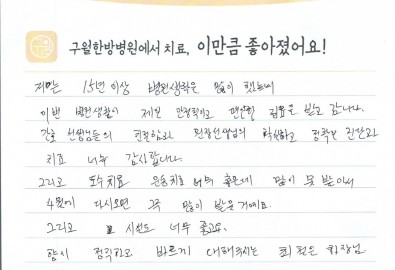 구월한방병원에서 치료, 이만큼 좋아졌어요!
저는 15년 이상 병원생활은 많이 했는데
이번 병원생활이 제일 만족하고 편안한 치료을 받고 갑니다.
간호 선생님들의 친절함과 원장선생님의 확실하고 정확한 진단과
치료 너무 감사합니다.
그리고 도수치료 운동치료 너무 좋은데 많이 못 받아서
4월에 다시오면 그때 많이 받을 거예요.
그리고 시설도 너무 좋고요.
항시 정직하고 바르게 대해주시는 최원은 원장님